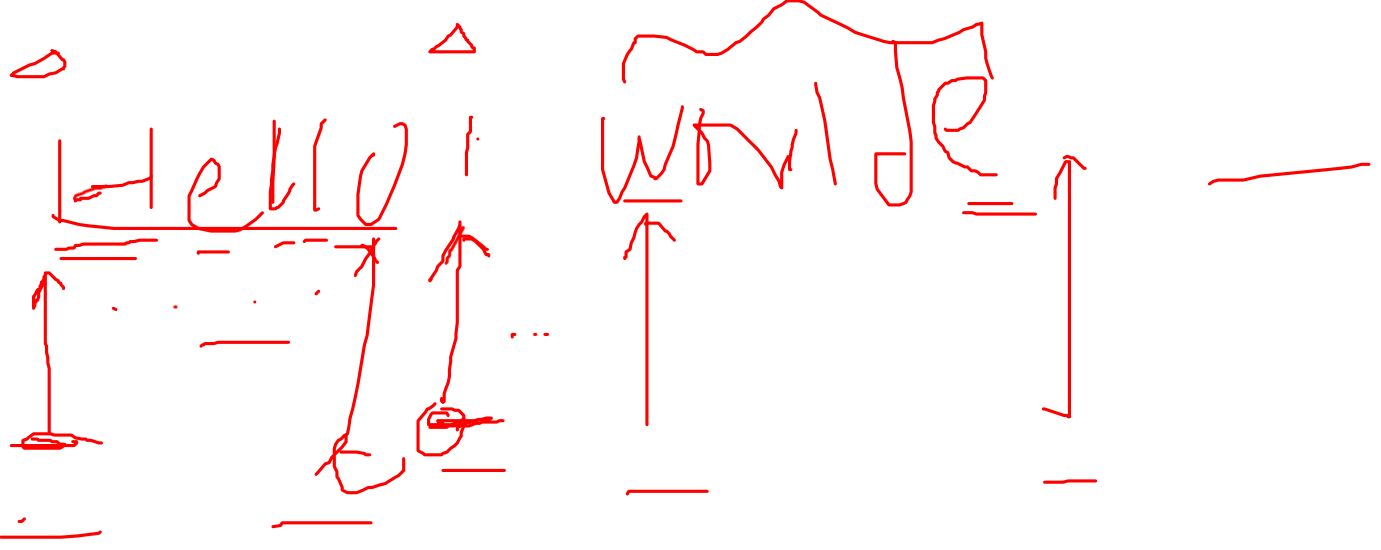 Hello i worlde